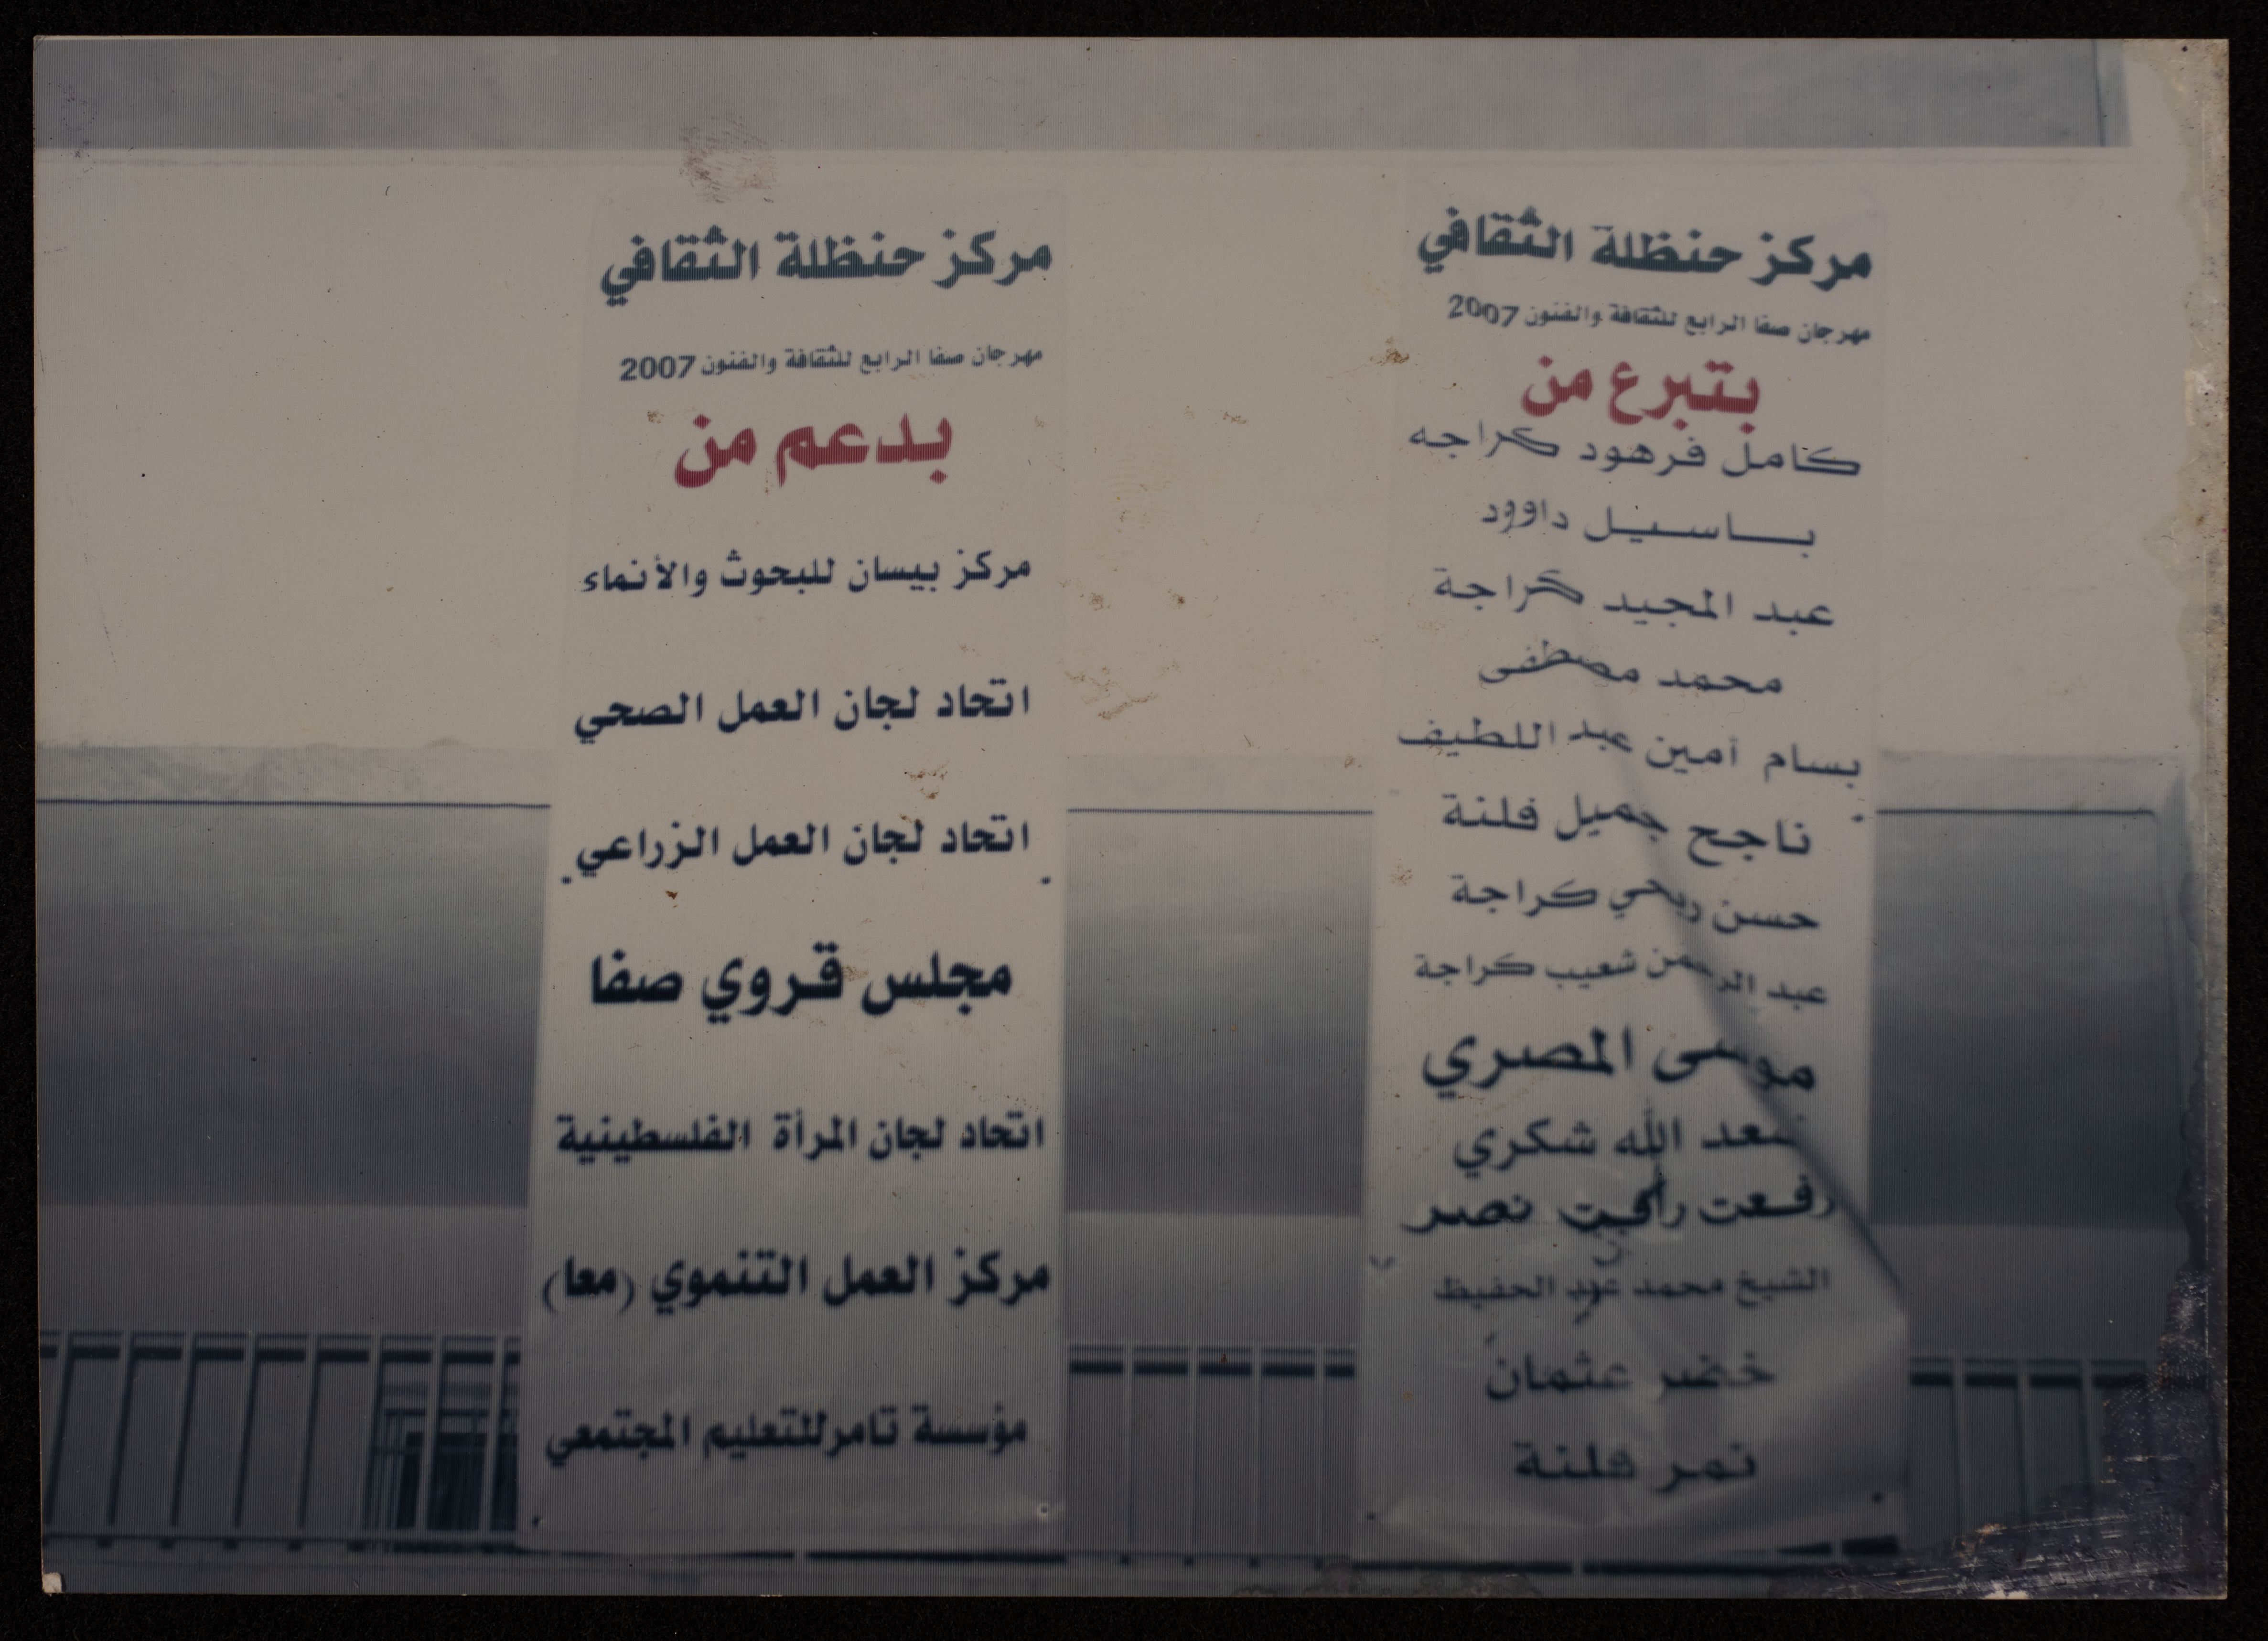 مركز حنظلة الثقافي
مهرجان صفا الرابع للثقافة والفنون 2007
بتبرع من
كامل فرهود كراجه
باسيل داوود
عبد المجيد كراجة
محمد مصطفى
بسام أمين عبد اللطيف
ناجح جميل فلنة
حسن ربحي كراجة
عبد الرحمن شعيب كراجة
موسى المصري
سعد الله شكري
رفعت نصر
الشيخ محمد عبد الحفيظ
خضر عثمان
نمر فلنة
مركز حنظلة الثقافي
مهرجان صفا الرابع للثقافة والفنون 2007
بدعم من
مركز بيسان للبحوث والأنماء
اتحاد لجان العمل الصحي
اتحاد لجان العمل الزراعي
مجلس قروي صفا
اتحاد لجان المرأة الفلسطينية
مركز العمل التنموي (معا)
مؤسسة تامر للتعليم المجتمعي